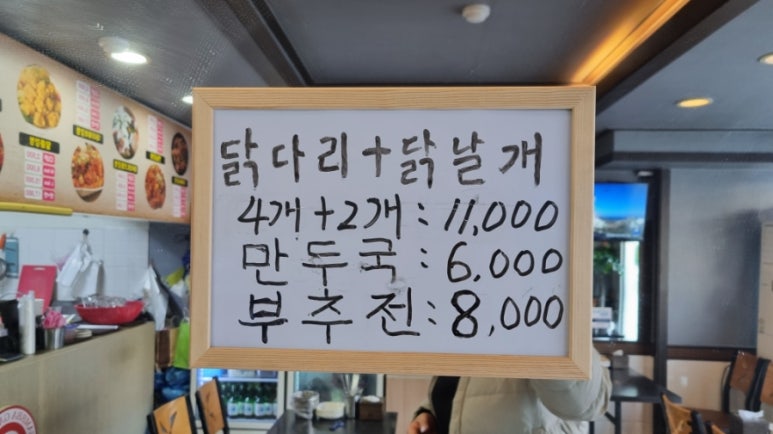 닭다리+닭날개
4개+2개: 11,000
만두국: 6,000
부추전: 8,000